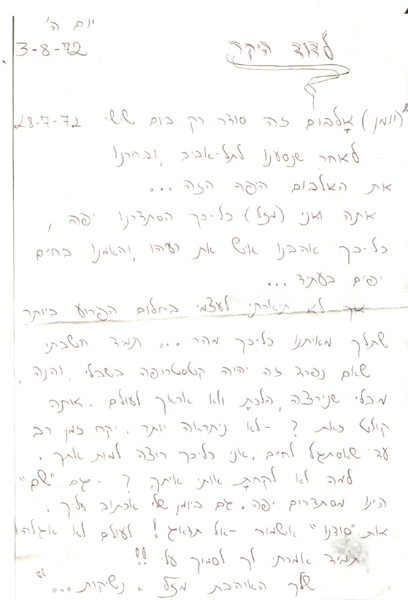 יום ה'
3-8-72
לדוד היקר
(יומן) אלבום זה סודר רק ביום ששי 28-7-72
לאחר שנסענו לתל-אביב, ובחרנו
את האלבום היפה הזה...
אתה ואני (מזל) כל-כך הסתדרנו יפה,
כל-כך אהבנו איש את רעהו, והאמנו בחיים
יפים בעתיד...
אך לא תיארתי לעצמי בחלום הפרוע ביותר
שתלך מאיתנו כל-כך מהר... תמיד חשבתי
שאם נפרד זה יהיה קטסטרופה בשבילי. והנה,
מבלי שנירצה, הלכת ולא אראך לעולם.
קולט זאת? - לא ניתראה יותר. יקח זמן רב
עד שאסתגל לחיים. אני כל-כך רוצה למות אתך.
למה לא לקחת אותי איתך? - גם "שם"
היינו מסתדרים יפה. גם ביומן שלי אכתוב אליך.
את "סודנו" אשמור - אל תדאג! לעולם לא אגלה!
תמיד אמרתי לך לסמוך עלי!!
שלך האוהבת מזל. נשיקות...